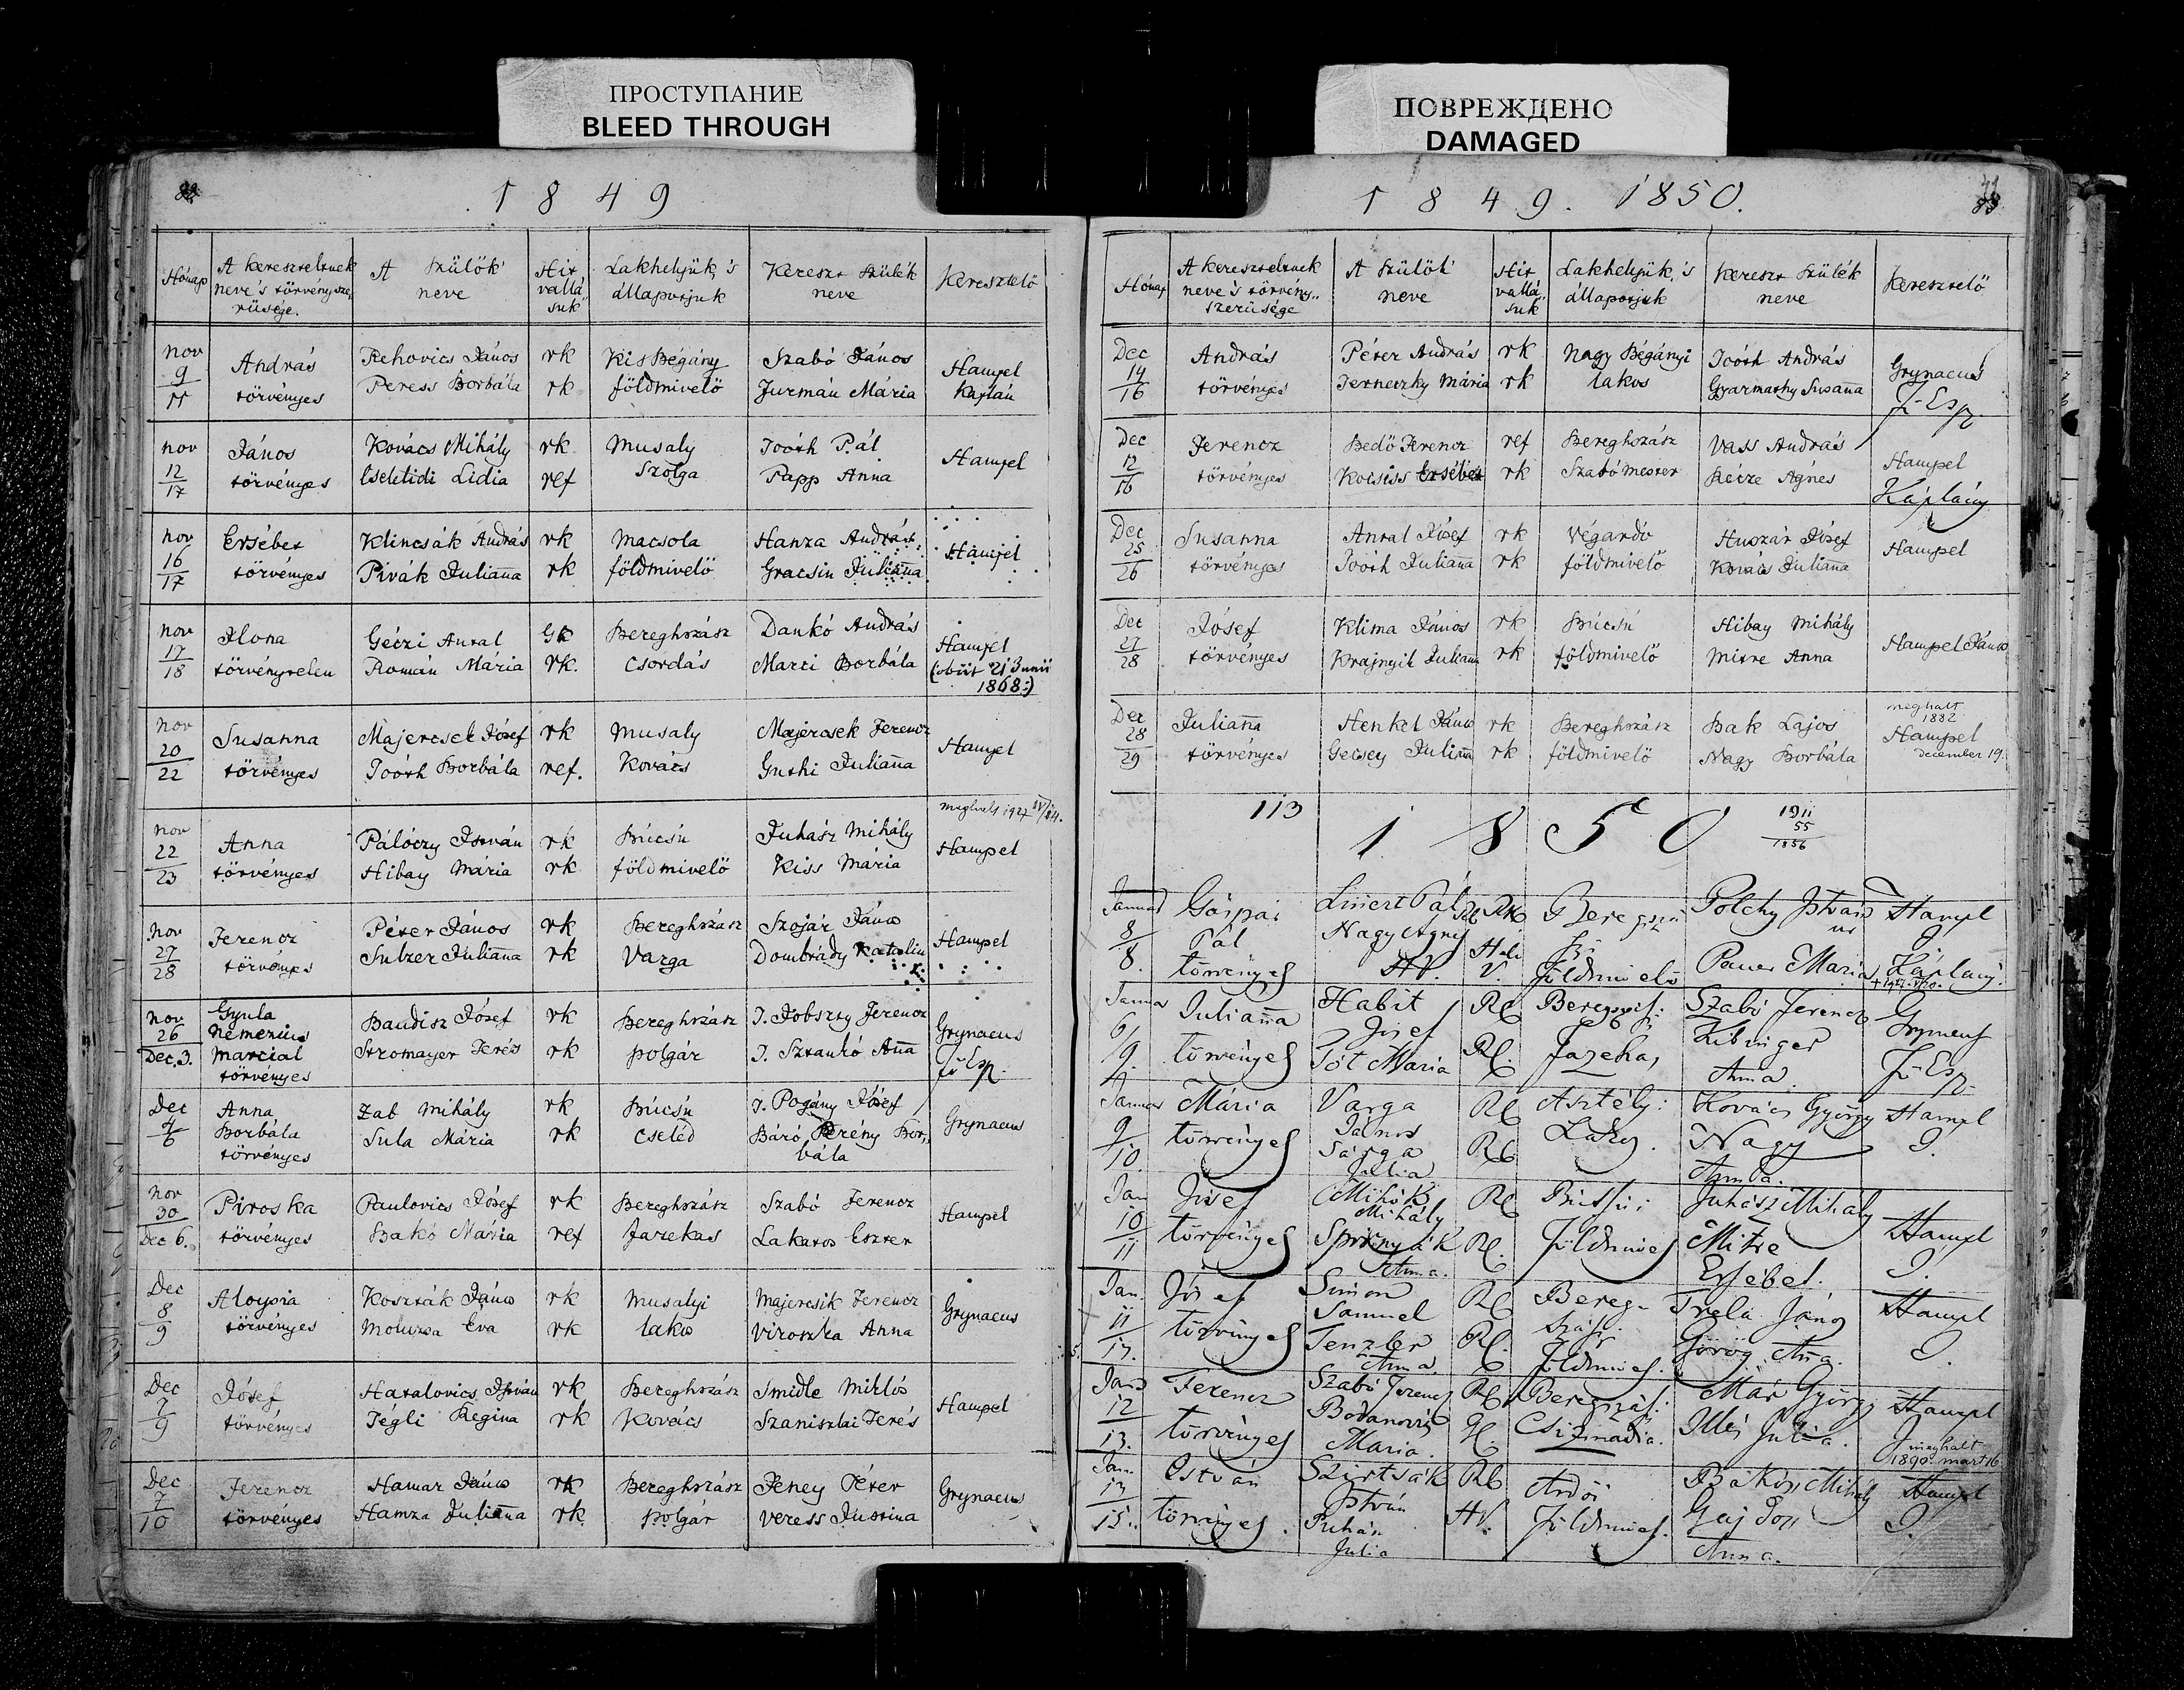 ПРОСТУПАНИЕ
BLEED THROUGH
ПОВРЕЖДЕНО
DAMAGED
1849
Hónap
A kereszteltnek neve 's törvénysze,, rüsége.
A Szülők' neve
Hit vallá,, suk
Lakhelyük,'s állapotjuk
Kereszt Szülék neve
Keresztelő
nov 9/11
András törvényes
Rehovics János
Peress Borbála
rk
rk
Kis Bégány földmivelő
Szabó János
Jurmán Mária
Hampel Kaplán
nov 12/17
János törvényes
Kovács Mihály
Lidia
rk
ref
Musaly Szolga
Toóth Pál
Papp Anna
Hampel
nov 16/17
Ersébet törvényes
Klincsák András
Pivák Julianna
rk
rk
Macsola földmivelő
Hanza András
Gracsin Julianna
Hampel
nov 17/18
Ilona törvénytelen
Géczi Antal
Román Mária
Gk
rk.
Bereghszász Csordás
Dankó András
Marci Borbála
Hampel
(obiit 21 Junii 1868:)
nov 20/22
Susanna törvényes
Majercsek Jósef
Toóth Borbála
rk
ref.
Musaly Kovács
Majercsek Ferencz
Guthi Julianna
Hampel
nov 22/23
Anna törvényes
Pálóczy István
Hibay Mária
rk
rk
Búcsú földmivelő
Juhász Mihály
Kiss Mária
Hampel
nov 27/28
Ferencz törvényes
Péter János
Sulzer Julianna
rk
rk
Bereghszász Varga
Szojár János
Dombrády Katalin
Hampel
nov 26
Dec. 3.
Gyula Nemezius Marcial törvényes
Baudisz Jósef
Stromayer Terés
rk
rk
Bereghszász polgár
T. Dobszty Ferencz
T. Sztankó Anna
Grynaeus Fő Esp.
Dec 4/6
Anna Borbála törvényes
Zab Mihály
Sula Mária
rk
rk
Búcsú Cseléd
T. Pogány Jósef
Báró Perény Bor,, bála
Grynaeus
nov 30
Dec 6.
Piroska törvényes
Paulovics Jósef
Bakó Mária
rk
ref
Bereghszász Fazekas
Szabó Ferencz
Lakatos Eszter
Hampel
Dec 8/9
Aloysia törvényes
Koszták János
Éva
rk
rk
Musalyi lakos
Majercsik Ferencz
Viroszka Anna
Grynaeus
Dec 7/9
Jósef törvényes
Hatalovics István
Tégli Regina
rk
rk
Bereghszász Kovács
Smidle Miklós
Szaniszlai Terés
Hampel
Dec 7/10
Ferencz törvényes
Hamar János
Hamza Julianna
rk
rk.
Bereghszász polgár
Jeney Péter
Veress Justina
Grynaeus
1849. 1850.
Hónap
A kereszteltnek neve 's törvény,, szerüsége
A Szülők' neve
Hit vallá,, suk
Lakhelyük,'s állapotjuk
Kereszt Szülék neve
Keresztelő
Dec 14/16
András törvényes
Péter András
Terneczky Mária
rk
rk
Nagy Bégányi lakos
Toóth András
Gyarmathy Susanna
Grynaeus Fő Esp
Dec 12/16
Ferencz törvényes
Bedő Ferencz
Kolsiss Ersébet
ref
rk
Bereghszász Szabó mester
Vass András
Récze Agnes
Hampel Káplány
Dec 25/26
Susanna törvényes
Antal Jósef
Toóth Julianna
rk
rk
Végardó földmivelő
Huszár Jósef
Kovács Julianna
Hampel
Dec 27/28
Jósef törvényes
Klima János
Krajnyik Julianna
rk
rk
Búcsú földmivelő
Hibay Mihály
Mitre Anna
Hampel János
Dec 28/29
Julianna törvényes
Henkel János
Gecsey Julianna
rk
rk
Bereghszász földmivelő
Bak Lajos
Nagy Borbála
meghalt 1882
Hampel
december 19.
113
1850
1911
55
1856
Januar 8/8.
Gáspár Pál törvényes
Linert Pál
Nagy Agnes
Rk
Hel. V.
Beregszász Földmivelő
Polchy István
Pauer Mária
Hampl J. Káplány.
Januar 6/9.
Julianna törvényes
Habit Jósef
Tót Mária
Rk
Rk.
Beregszász: Fazekas
Szabó Ferencz
Kibinger Anna.
Fő Esp.
Januar 9/10.
Mária törvényes
Varga János
Sárga Julia
Rk
Rk
Asztély: Lakos.
Kovács György
Nagy Anna.
Hampl J.
Jan 10/11
Jósef törvényes
Mihók Mihály
Anna.
Rk
Rk.
Földmives
Juhász Mihály
Mitre Ersébet.
Hampl J.
Jan. 11/13.
Jósef törvényes
Simon Samuel
Tenzler Anna
Rk
Rk.
Beregszász: Földmives.
János
Görög Anna.
Hampl J.
Jan 12/13.
Ferencz törvényes
Szabó Ferencz
Bodanovics Maria.
Rk
Beregszász: Csizmadia.
Már György
Illés Julia.
Hampl J.
meghalt
1890 mart 16
Jan. 13/15.
István törvényes.
Szirtsák István
Puhán Julia
Rk
HV.
Ardói Földmives.
Bakos Mihály
Gajdos Anna.
Hampl J.